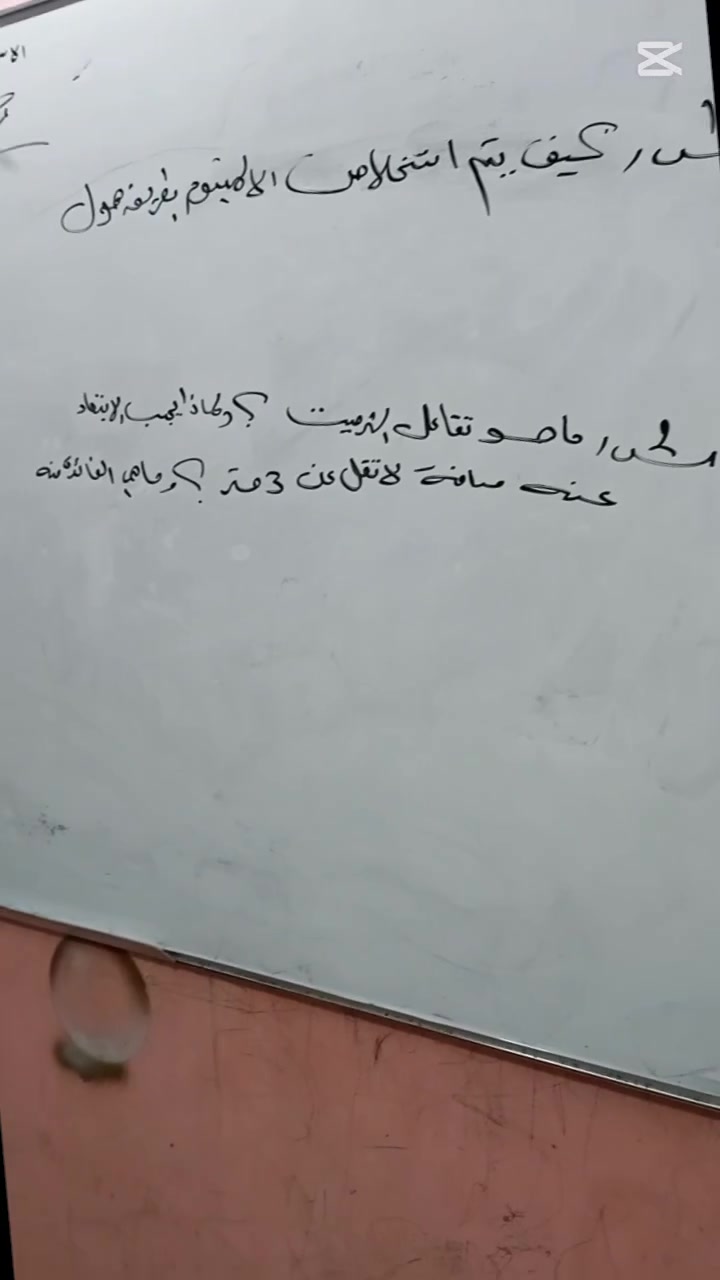 الا
س1/ كيف يتم استخلاص الالمنيوم بطريقة هول
س2/ ما هو تفاعل الثرميت ؟ ولماذا يجب الابتعاد
عنه مسافة لا تقل عن 3 متر ؟ وماهي الفائدة منه